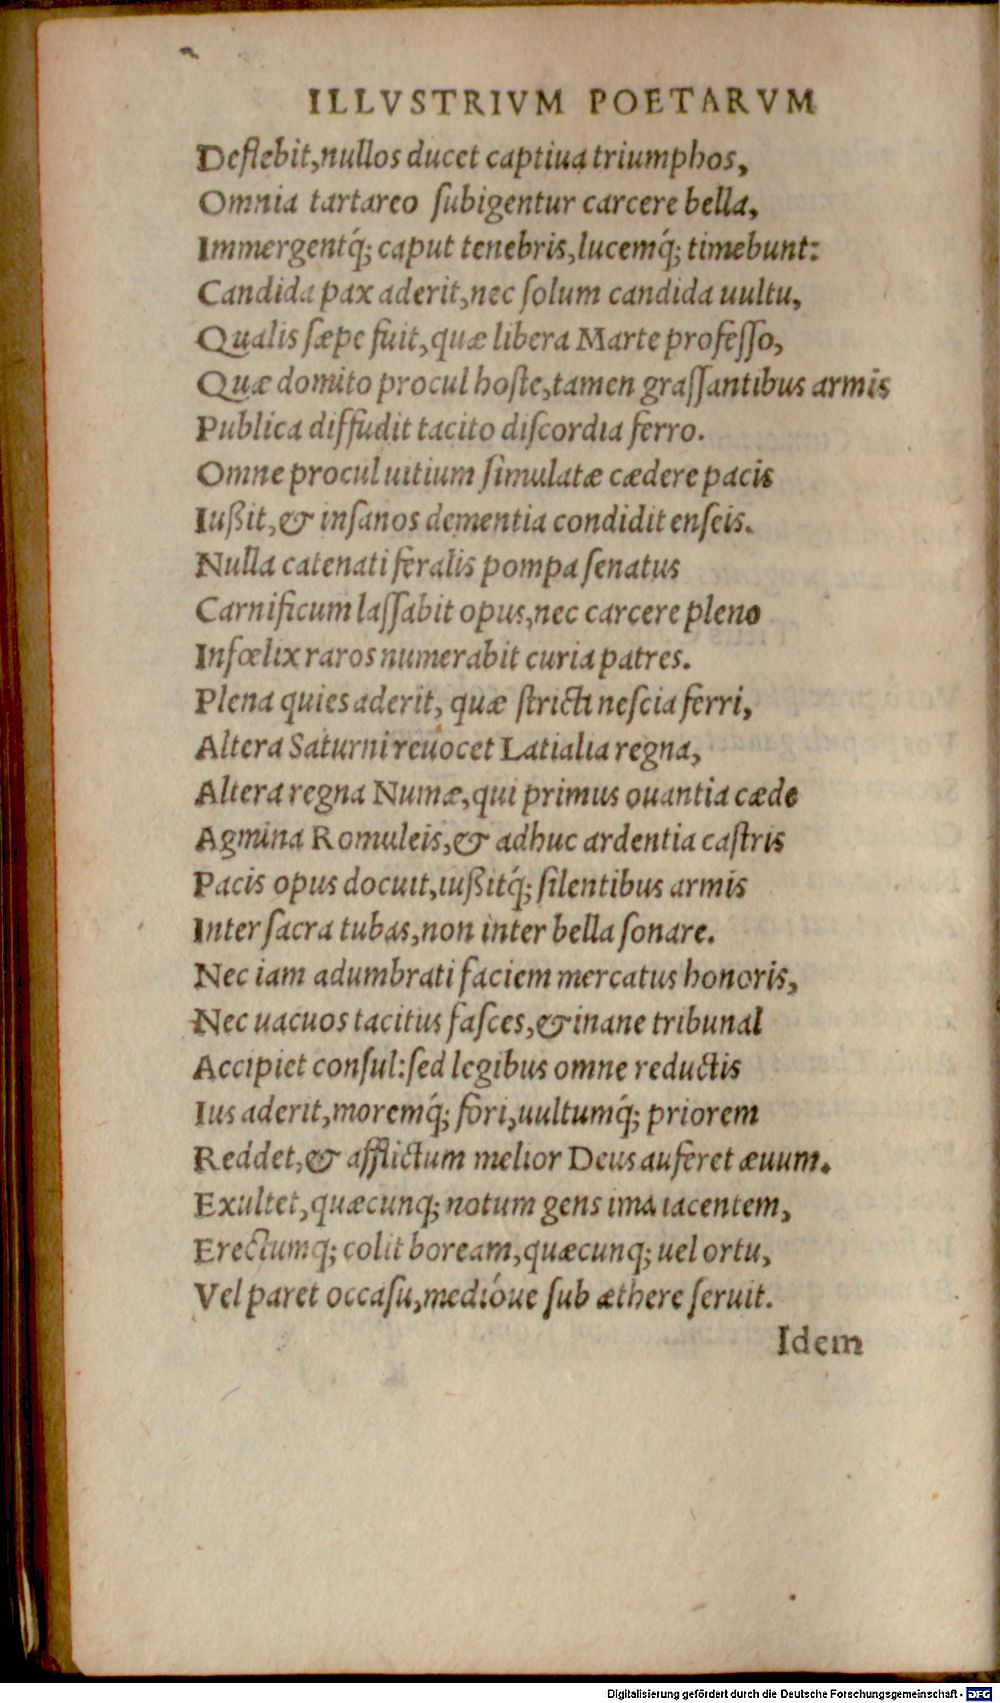 ILLVSTRIVM POETARVM
Deflebit,nullos ducet captiua triumphos,
Omnia tartareo ſubigentur carcere bella,
Immergentq́; caput tenebris,lucemq́; timebunt:
Candida pax aderit,nec ſolum candida uultu,
Qualis ſæpe fuit,quæ libera Marte profeſſo,
Quæ domito procul hoſte,tamen graſſantibus armis
Publica diffudit tacito diſcordia ferro.
Omne procul uitium ſimulatæ cædere pacis
Iußit,& inſanos dementia condidit enſeis.
Nulla catenati feralis pompa ſenatus
Carnificum laſſabit opus,nec carcere pleno
Infœlix raros numerabit curia patres.
Plena quies aderit, quæ ſtricti neſcia ferri,
Altera Saturni reuocet Latialia regna,
Altera regna Numæ,qui primus ouantia cæde
Agmina Romuleis,& adhuc ardentia caſtris
Pacis opus docuit,iußitq́; ſilentibus armis
Inter ſacra tubas,non inter bella ſonare.
Nec iam adumbrati faciem mercatus honoris,
Nec uacuos tacitus faſces,& inane tribunal
Accipiet conſul:ſed legibus omne reductis
Ius aderit,moremq́; fori,uultumq́; priorem
Reddet,& afflictum melior Deus auferet æuum.
Exultet,quæcunq; notum gens ima iacentem,
Erectumq; colit boream,quæcunq; uel ortu,
Vel paret occaſu,medióue ſub æthere ſeruit.
Idem
Digitalisierung gefördert durch die Deutsche Forschungsgemeinschaft - DFG